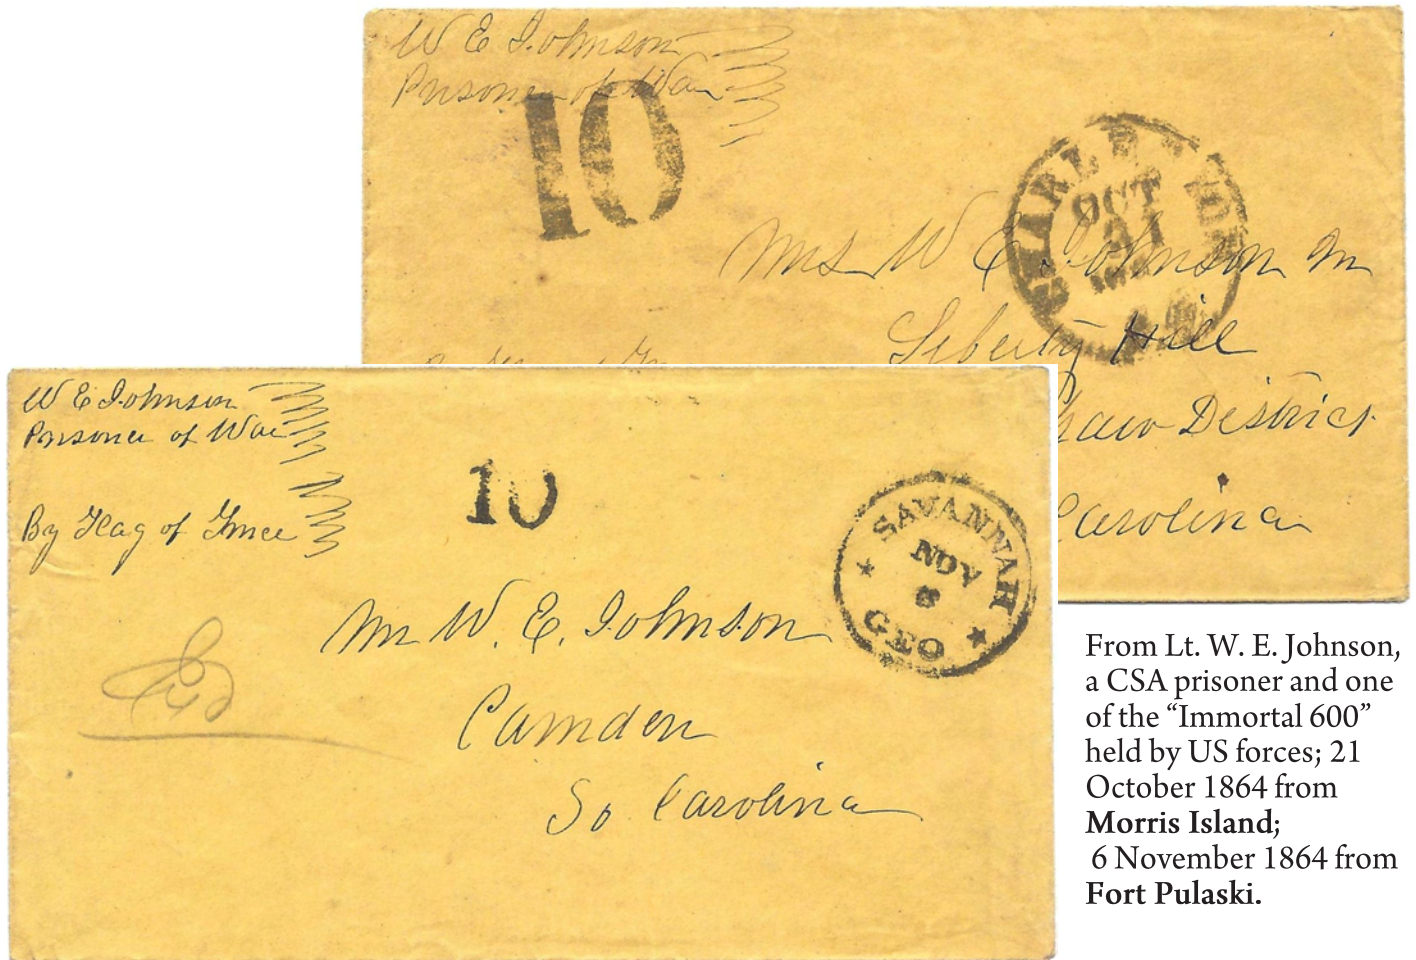 W E Johnson
Prisoner of War
10
CHARLESTON
OCT
21
Mrs W E Johnson
Liberty Hill
District
Carolina
W E Johnson
Prisoner of War
By Flag of Truce
10
SAVANNAH
NOV
GEO
Mr W. E. Johnson
Camden
So Carolina
From Lt. W. E. Johnson,
a CSA prisoner and one
of the “Immortal 600”
held by US forces; 21
October 1864 from
Morris Island;
6 November 1864 from
Fort Pulaski.